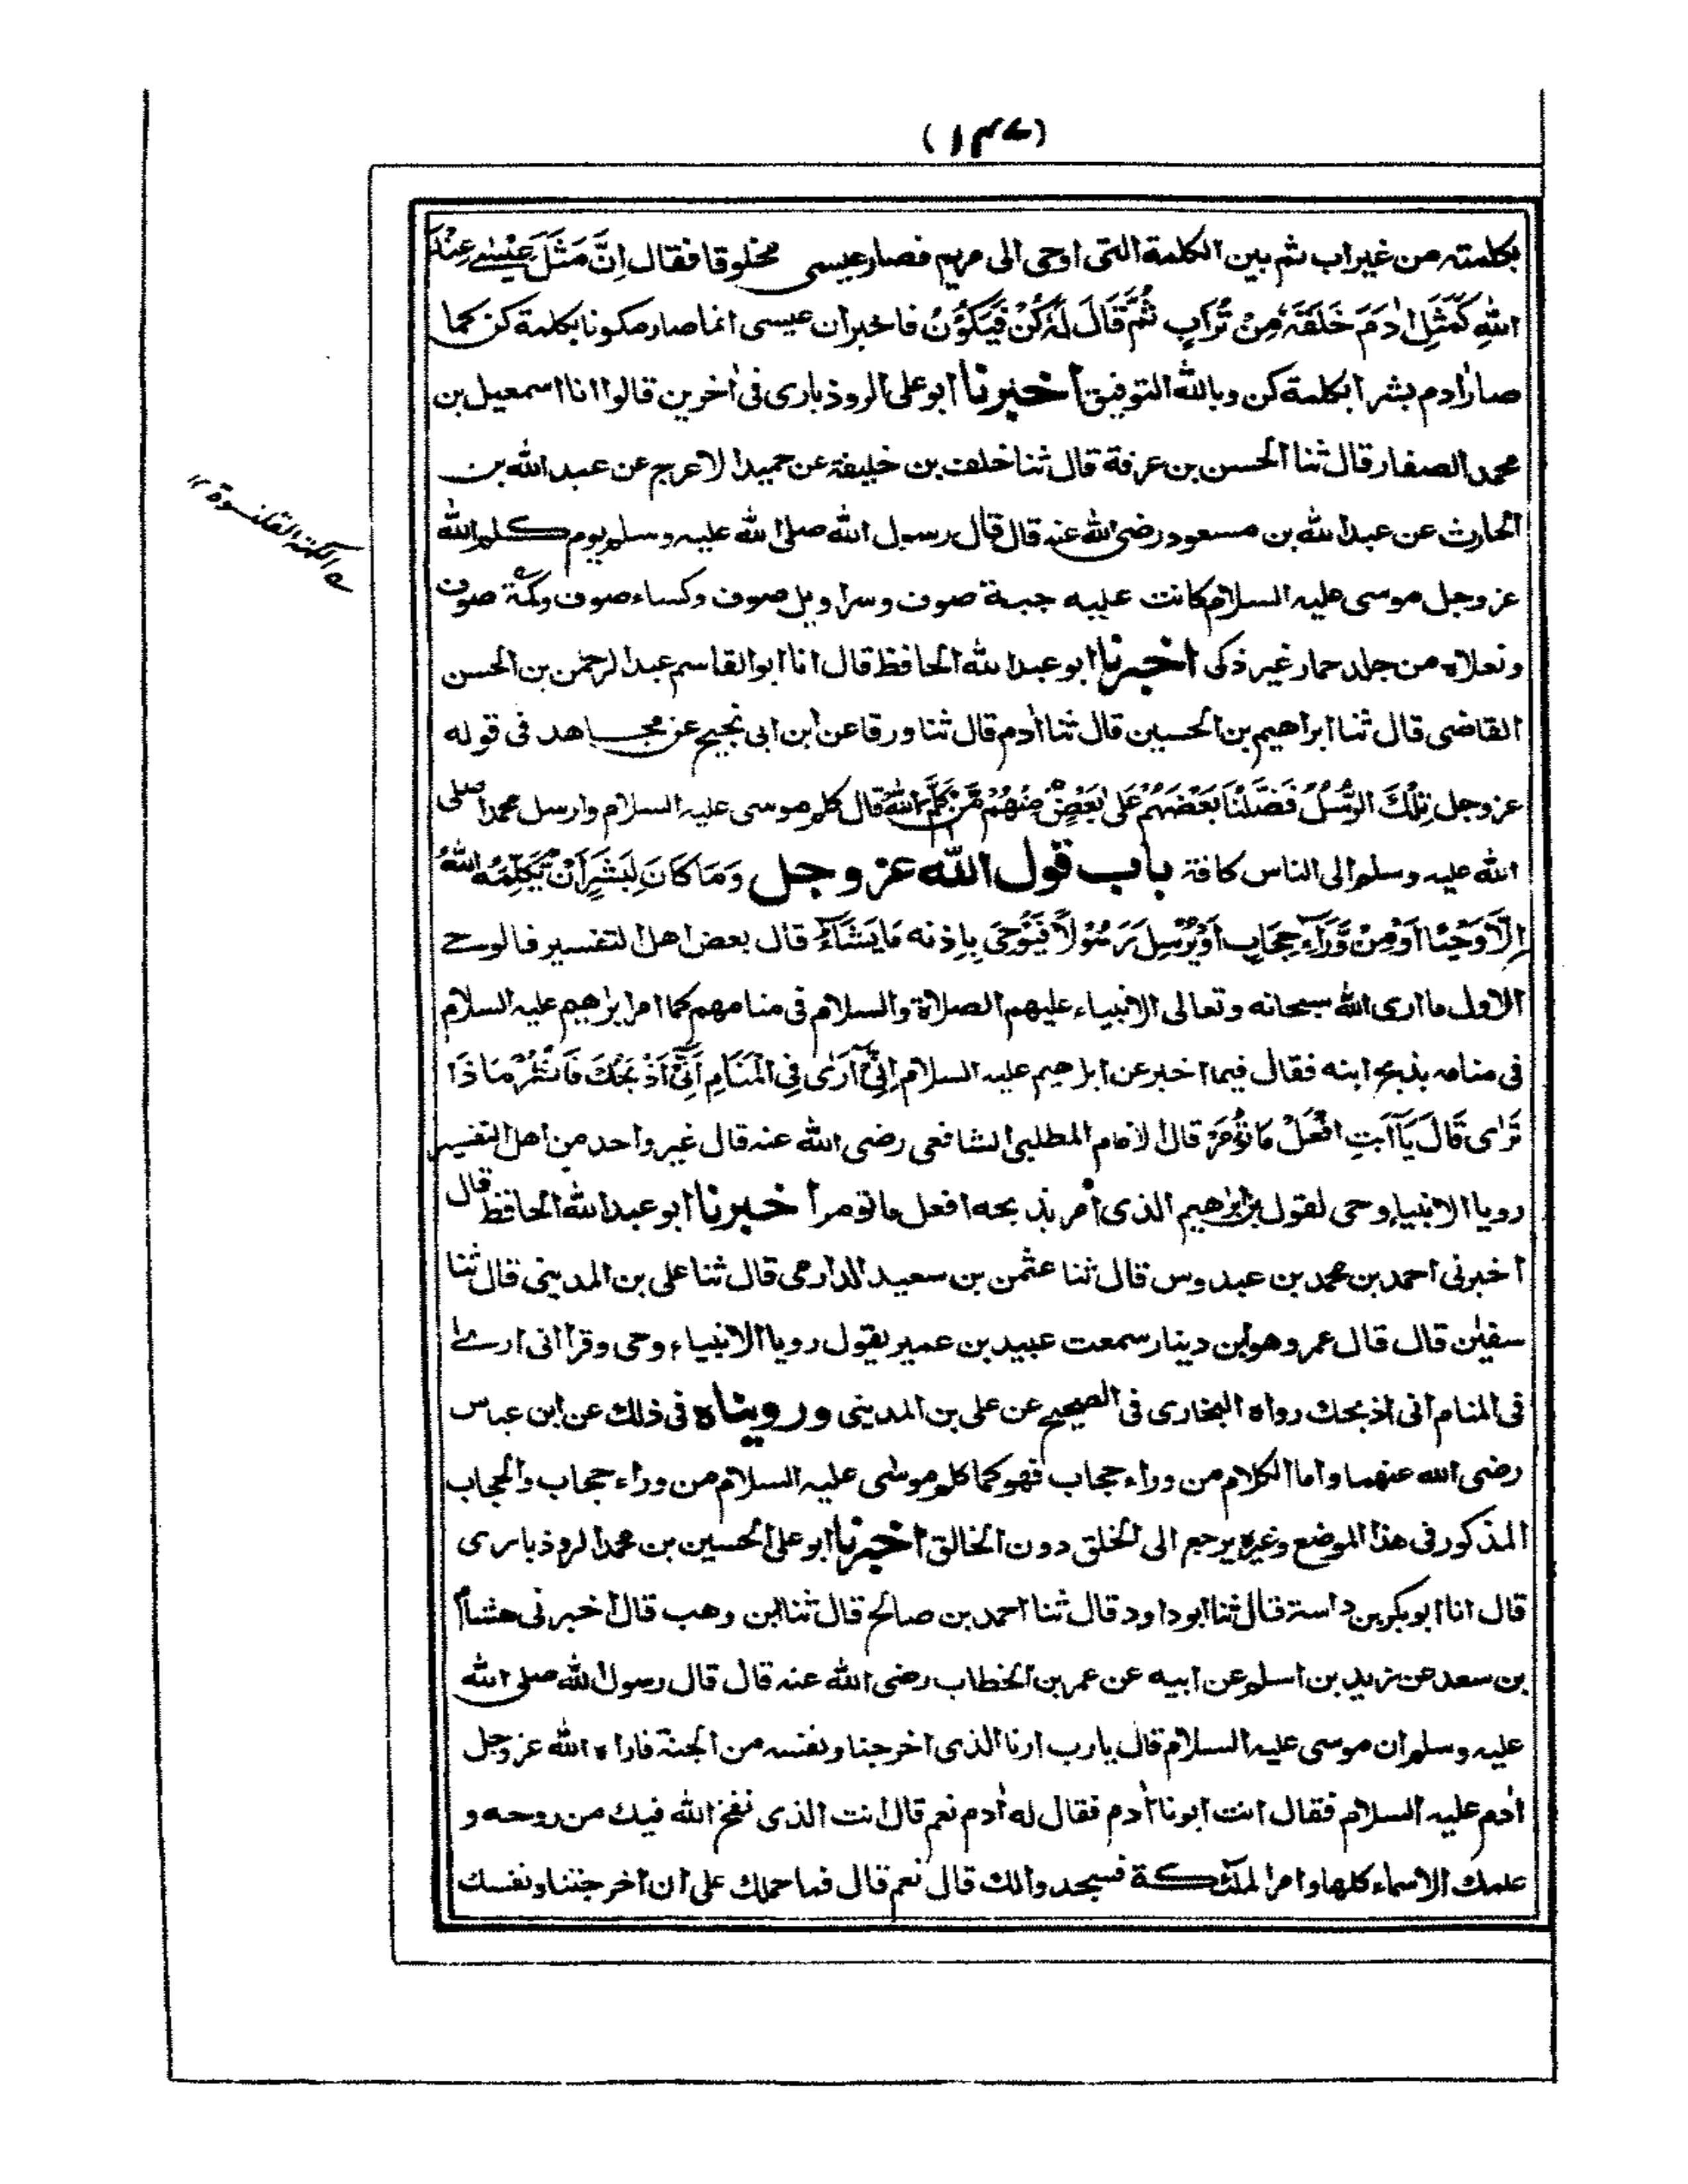 (١٤٧)
بكلمته من غير اب ثم بين الكلمة التى اوحى الى مريم فصار عيسى مخلوقا فقال اِنَّ مَثَلَ عِيْسٰى عِنْدَ
اللهِ كَمَثَلِ اٰدَمَ خَلَقَهٗ مِنْ تُرَابٍ ثُمَّ قَالَ لَهٗ كُنْ فَيَكُوْنُ فاخبر ان عيسى انما صار مكونا بكلمة كن كما
صار اٰدم بشرا بكلمة كن وبالله التوفيق اخبرنا ابو على الروذبارى فى اٰخرين قالوا انا اسمعيل بن
محمد الصفار قال ثنا الحسن بن عرفة قال ثنا خلف بن خليفة عن حميد الاعرج عن عبد الله بن
الحارث عن عبد الله بن مسعود رضى الله عنه قال قال رسول الله صلى الله عليه وسلم يوم كلم الله
عز وجل موسى عليه السلام كانت عليه جبة صوف وسراويل صوف وكساء صوف وكمة صوف
ونعلاه من جلد حمار غير ذكى اخبرنا ابو عبد الله الحافظ قال انا ابو القاسم عبد الرحمٰن بن الحسن
القاضى قال ثنا ابراهيم بن الحسين قال ثنا اٰدم قال ثنا ورقا عن ابن ابى نجيح عن مجاهد فى قوله
عز وجل تِلْكَ الرُّسُلُ فَضَّلْنَا بَعْضَهُمْ عَلٰى بَعْضٍ مِنْهُمْ مَّنْ كَلَّمَ اللهُ قال كلم موسى عليه السلام وارسل محمدا صلى
الله عليه وسلم الى الناس كافة باب قول الله عز وجل وَمَا كَانَ لِبَشَرٍ اَنْ يُّكَلِّمَهُ اللهُ
اِلَّا وَحْيًا اَوْ مِنْ وَّرَآءِ حِجَابٍ اَوْ يُرْسِلَ رَسُوْلًا فَيُوْحِىَ بِاِذنه مَا يَشَآءُ قال بعض اهل التفسير فالوحى
الاول ما ارى الله سبحانه وتعالى الانبياء عليهم الصلاة والسلام فى منامهم كما امر ابرٰهيم عليه السلام
فى منامه بذبح ابنه فقال فيما اخبر عن ابرٰهيم عليه السلام اِنِّىْٓ اَرٰى فِى الْمَنَامِ اَنِّىْٓ اَذْبَحُكَ فَانْظُرْ مَاذَا
تَرٰى قَالَ يَآ اَبَتِ افْعَلْ مَا تُؤْمَرُ قال الامام المطلبى الشافعى رضى الله عنه قال غير واحد من اهل التفسير
رويا الانبياء وحى لقول بن ابرٰهيم الذى اُمر بذبحه افعل ما تومر اخبرنا ابو عبد الله الحافظ قال
اخبرنى احمد بن محمد بن عبدوس قال ثنا عثمٰن بن سعيد الدارمى قال ثنا على بن المدينى قال ثنا
سفيٰن قال قال عمر وهو ابن دينار سمعت عبيد بن عمير يقول رويا الانبياء وحى وقرأ انى ارى
فى المنام انى اذبحك رواه البخارى فى الصحيح عن على بن المدينى ورويناه فى ذلك عن ابن عباس
رضى الله عنهما واما الكلام من وراء حجاب فهو كما كلم موسٰى عليه السلام من وراء حجاب والحجاب
المذكور فى هذا الموضع وغيره يرجع الى الخلق دون الخالق اخبرنا ابو على الحسين بن محمد الروذبارى
قال انا ابو بكر بن داسة قال ثنا ابو داود قال ثنا احمد بن صالح قال ثنا ابن وهب قال اخبرنى هشام
بن سعد عن زيد بن اسلم عن ابيه عن عمر بن الخطاب رضى الله عنه قال قال رسول الله صلى الله
عليه وسلم ان موسى عليه السلام قال يا رب ارنا الذى اخرجنا ونفسه من الجنة فاراه الله عز وجل
اٰدم عليه السلام فقال انت ابونا اٰدم فقال له اٰدم نعم قال انت الذى نفخ الله فيك من روحه و
علمك الاسماء كلها وامر الملٰٓئكة فسجدوا لك قال نعم قال فما حملك على ان اخرجتنا ونفسك
ه الكمة القلنسوة ١٢